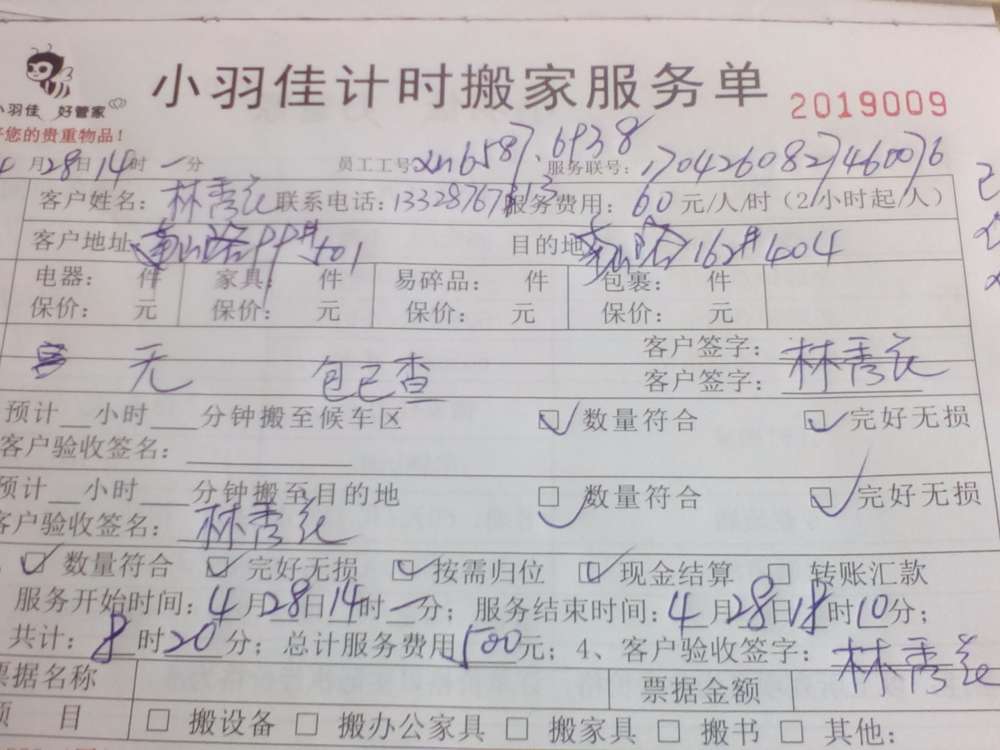 小羽佳计时搬家服务单
小羽佳 好管家
2019009
好您的贵重物品！
4月28日14时一分 员工工号：xm6587、6938 服务联号：1704260827460076
客户姓名：林秀花 联系电话：13328767313 服务费用：60元/人/时（2小时起/人）
客户地址 99#501 目的地 162#404
电器： 件 家具： 件 易碎品： 件 包裹： 件
保价： 元 保价： 元 保价： 元 保价： 元
客户签字：林秀花
无 包已查 客户签字：
预计__小时___分钟搬至候车区 ☑数量符合 ☑完好无损
客户验收签名：
预计__小时___分钟搬至目的地 ☑数量符合 ☑完好无损
客户验收签名：林秀花
☑数量符合 ☑完好无损 ☑按需归位 ☑现金结算 □转账汇款
服务开始时间：4月28日14时一分；服务结束时间：4月28日18时10分；
共计：8时20分；总计服务费用500元；4、客户验收签字：林秀花
票据名称 票据金额
项 目 □搬设备 □搬办公家具 □搬家具 □搬书 □其他：